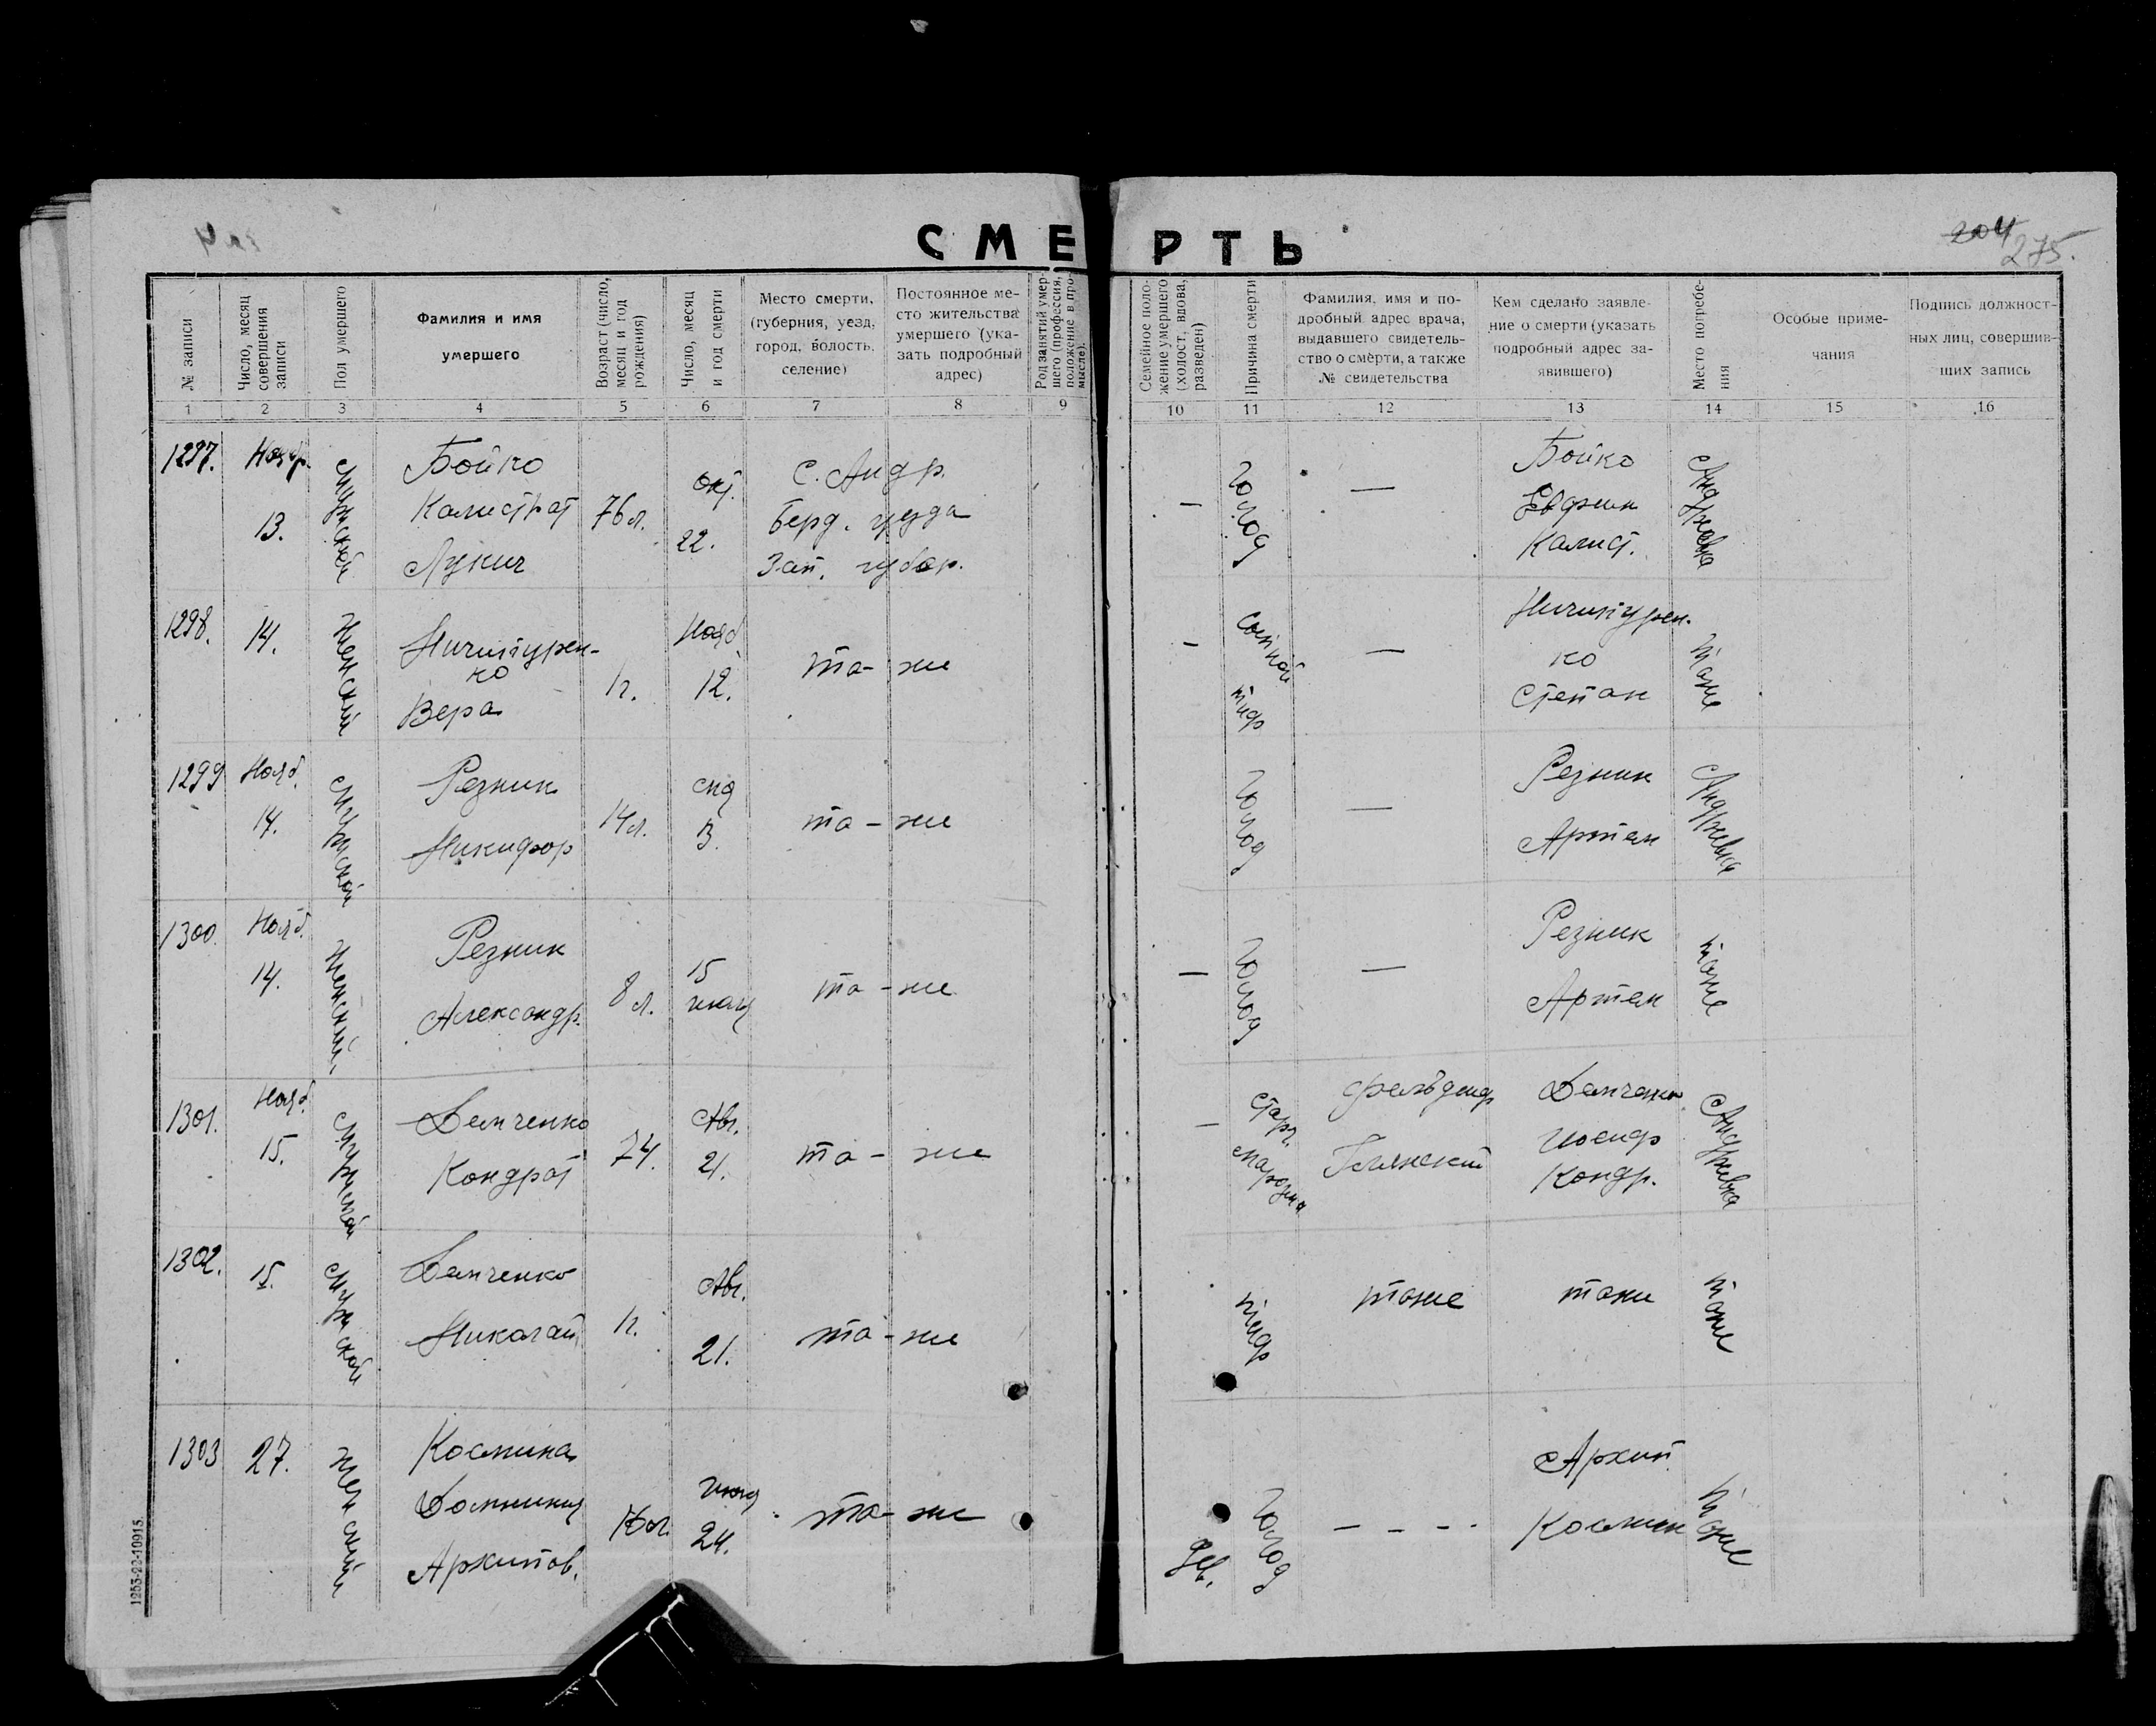 СМЕРТЬ
204
275.
№ записи
Число, месяц
совершения
записи
Пол умершего
Фамилия и имя
умершего
Возраст (число,
месяц и год
рождения)
Число, месяц
и год смерти
Место смерти,
(губерния, уезд,
город, волость,
селение)
Постоянное ме-
сто жительства
умершего (ука-
зать подробный
адрес)
Род занятий умер-
шего (профессия,
положение в про-
мысле).
Семейное поло-
жение умершего
(холост, вдова,
разведен)
Причина смерти
Фамилия, имя и по-
дробный адрес врача,
выдавшего свидетель-
ство о смерти, а также
№ свидетельства
Кем сделано заявле-
ние о смерти (указать
подробный адрес за-
явившего)
Место погребе-
ния
Особые приме-
чания
Подпись должност-
ных лиц, совершив-
ших запись
1 2 3 4 5 6 7 8 9 10 11 12 13 14 15 16
1297.
Ноябр.
13.
Мужской
Бойко
Калистрат
Лукич
76 л.
окт.
22.
С. Андр.
Берд. уезда
Зап. губер.
—
Голод
—
Бойко
Евфим
Калист.
Андреевка
1298.
14.
Женский
Ничипурен-
ко
Вера
1 г.
Нояб.
12.
та - же
—
Сыпной
тиф
—
Ничипурен-
ко
Степан
тоже
1299
Нояб.
14.
Мужской
Резник
Никифор
14 л.
та - же
Голод
—
Резник
Артем
Андреевка
1300.
Нояб.
14.
Женский
Резник
Александр.
8 л.
15
та - же
—
Голод
—
Резник
Артем
тоже
1301.
Нояб.
15.
Мужской
Демченко
Кондрат
74.
Авг.
21.
та - же
—
Старч.
Фельдшер
Демченко
Иосиф
Кондр.
Андреевка
1302.
15.
Мужской
Демченко
Николай
1 г.
Авг.
21.
та - же
тиф
тоже
тоже
тоже
1303
27.
Женский
Космина
Домникия
Архипов.
24.
та - же
Дев.
Голод
- - - -
Архип
Космин
тоже
1253-22-10915.